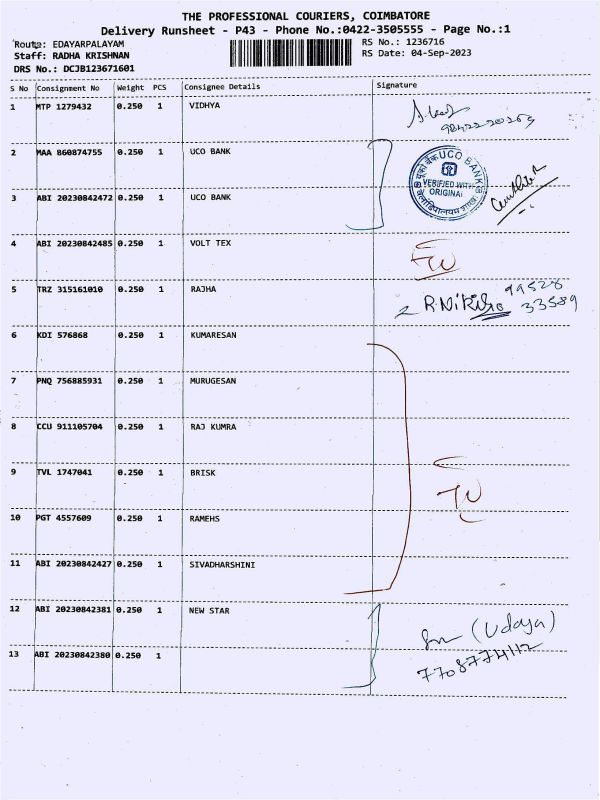 THE PROFESSIONAL COURIERS, COIMBATORE
Delivery Runsheet - P43 - Phone No.:0422-3505555 - Page No.:1
Route: EDAYARPALAYAM
Staff: RADHA KRISHNAN
DRS No.: DCJB123671601
RS No.: 1236716
RS Date: 04-Sep-2023
S No Consignment No Weight PCS Consignee Details Signature
1 MTP 1279432 0.250 1 VIDHYA
2 MAA 860874755 0.250 1 UCO BANK
यूको बैंक UCO BANK
VERIFIED WITH
ORIGINAL
3 ABI 20230842472 0.250 1 UCO BANK
4 ABI 20230842485 0.250 1 VOLT TEX
5 TRZ 315161010 0.250 1 RAJHA
99528
33589
6 KDI 576868 0.250 1 KUMARESAN
7 PNQ 756885931 0.250 1 MURUGESAN
8 CCU 911105704 0.250 1 RAJ KUMRA
9 TVL 1747041 0.250 1 BRISK
10 PGT 4557609 0.250 1 RAMEHS
11 ABI 20230842427 0.250 1 SIVADHARSHINI
12 ABI 20230842381 0.250 1 NEW STAR
(Udaya)
13 ABI 20230842380 0.250 1
7708774112